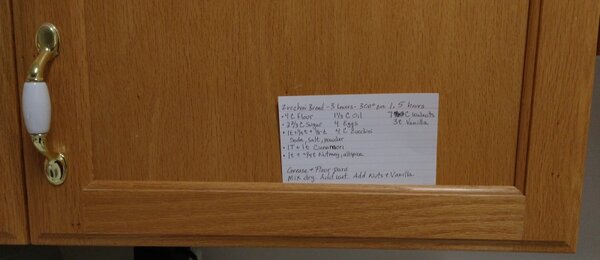 Zucchini Bread - 3 hours - 300° for 1.5 hours
• 4 C Flour 1 1/3 C Oil C Walnuts
• 2 2/3 C Sugar 4 Eggs 3t Vanilla
4 C Zucchini
Soda, salt, powder
• 1T + 1t Cinnamon
• 1t + Nutmeg, allspice
Grease + Flour pans
Mix dry. Add wet. Add Nuts & Vanilla